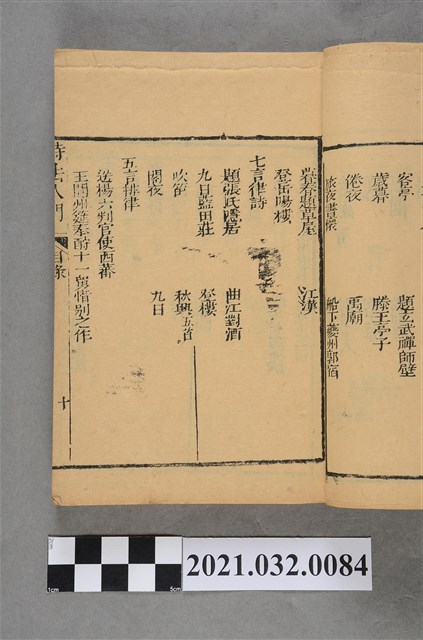 客亭　題玄武禪師壁
歲暮　滕王亭子
倦夜　禹廟
旅夜書懷　船下夔州郭宿
暮春題草屋　江漢
登岳陽樓
七言律詩
題張氏隱居　曲江對酒
九日藍田莊　登樓
吹笛　秋興五首
閣夜　九日
五言排律
送楊六判官使西蕃
王閬州筵奉酧十一舅惜別之作
詩法入門　目錄　十
1cm 5cm
2021.032.0084